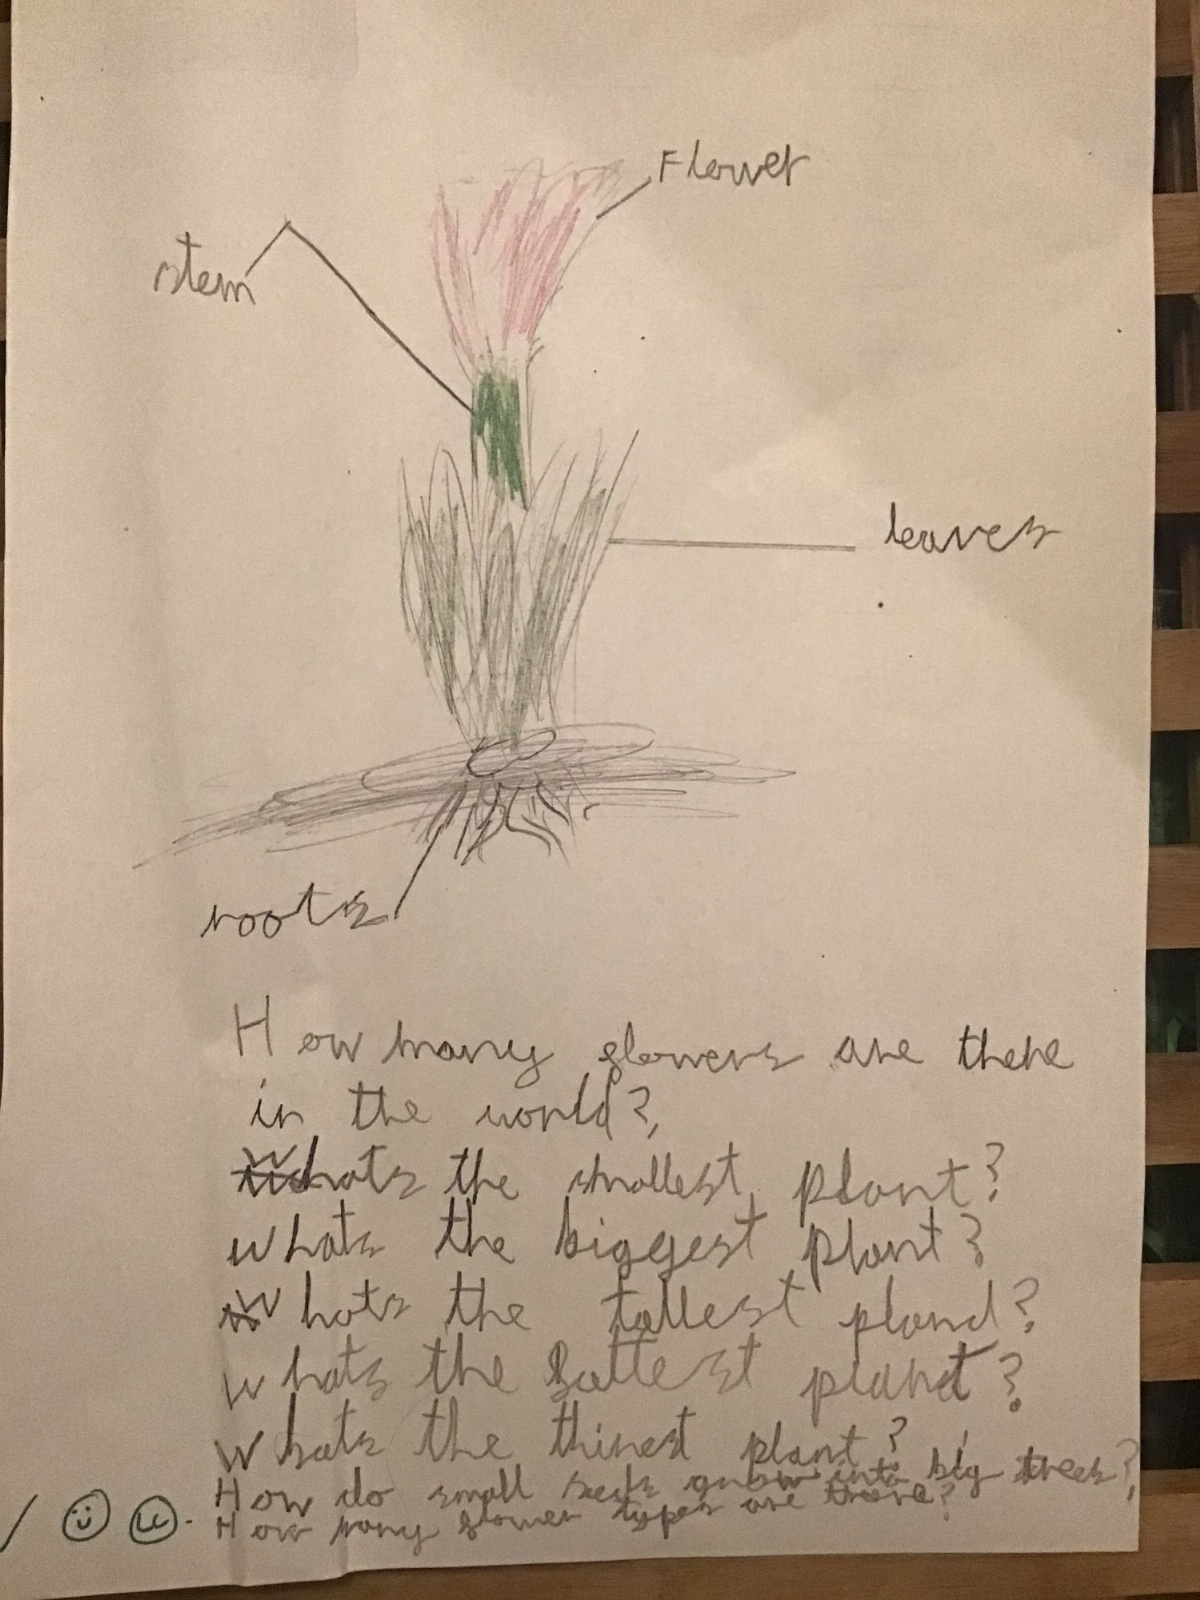 Flower
stem
leaves
roots
How many flowers are there
in the world?
Whats the smallest plant?
whats the biggest plant?
Whats the tallest pland?
whats the fattest plant?
Whats the thinest plant?
How do small seeds grow into big trees?
How many flower types are there?